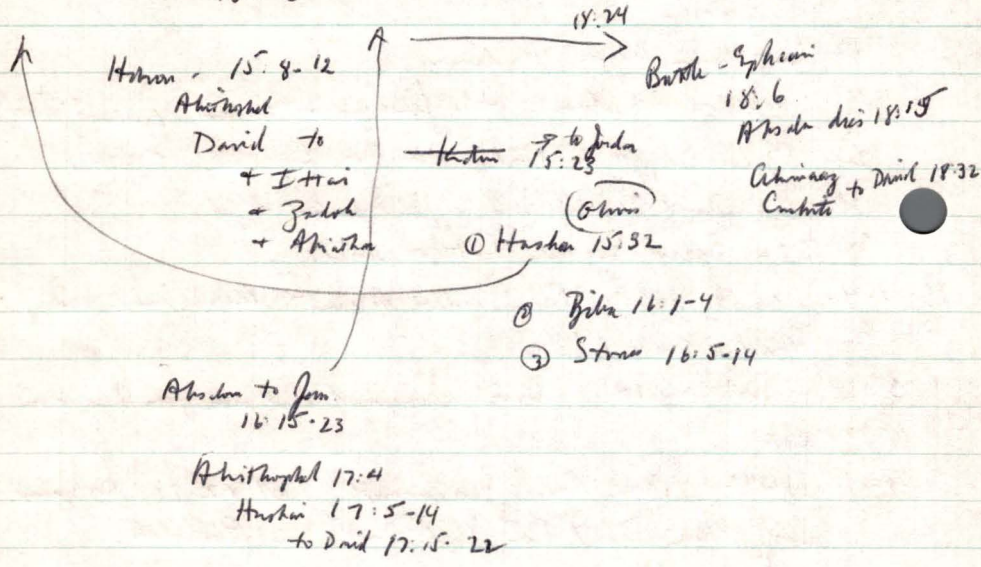 18:24
Hebron - 15:8-12
Ahithophel
David to
+ Ittai
+ Zadok
+ Abiathar
Kidron 15:23 → to Jordan
(Olives)
① Hushai 15:32
② Ziba 16:1-4
③ Stones 16:5-14
Battle - Ephraim
18:6
Absalom dies 18:15
Ahimaaz
Cushite to David 18:32
Absalom to Jeru.
16:15-23
Ahithophel 17:4
Hushai 17:5-14
to David 17:15-22